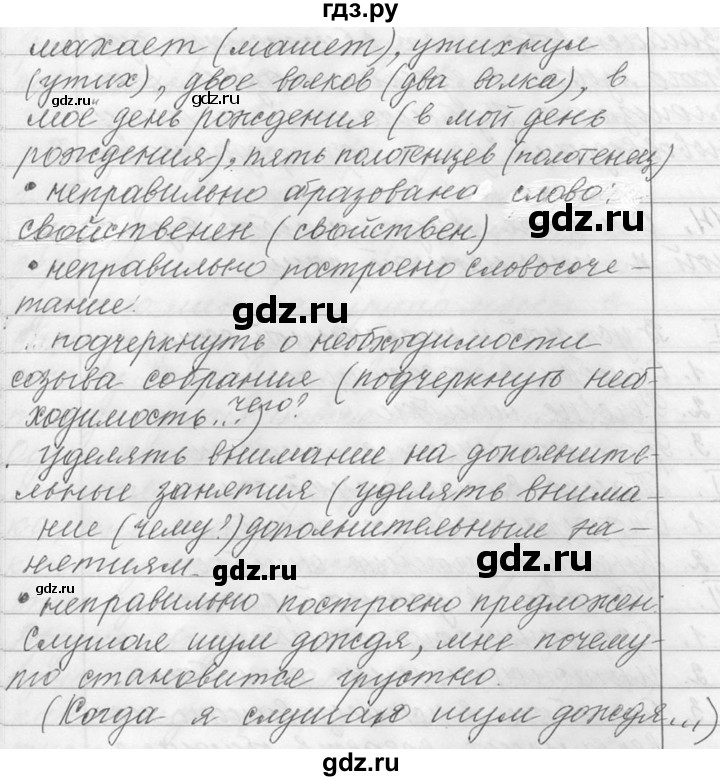 гдз.ру
махает (машет), утихнул
(утих), двое волков (два волка), в
gdz.ru gdz.ru
моё день рождения (в мой день
рождения), пять полотенцев (полотенец)
• неправильно образовано слово:
gdz.ru
свойственен (свойствен)
• неправильно построено словосоче-
тание:
gdz.ru
подчеркнуть о необходимости
созыва собрания (подчеркнуть необ-
ходимость... чего?)
уделять внимание на дополните-
льные занятия (уделять внима-
ние (чему?) дополнительным за-
нятиям.
gdz.ru
gdz.ru
gdz.ru
• неправильно построено предложен:
Слушая шум дождя, мне почему-
то становится грустно.
(Когда я слушаю шум дождя...)
gdz.ru